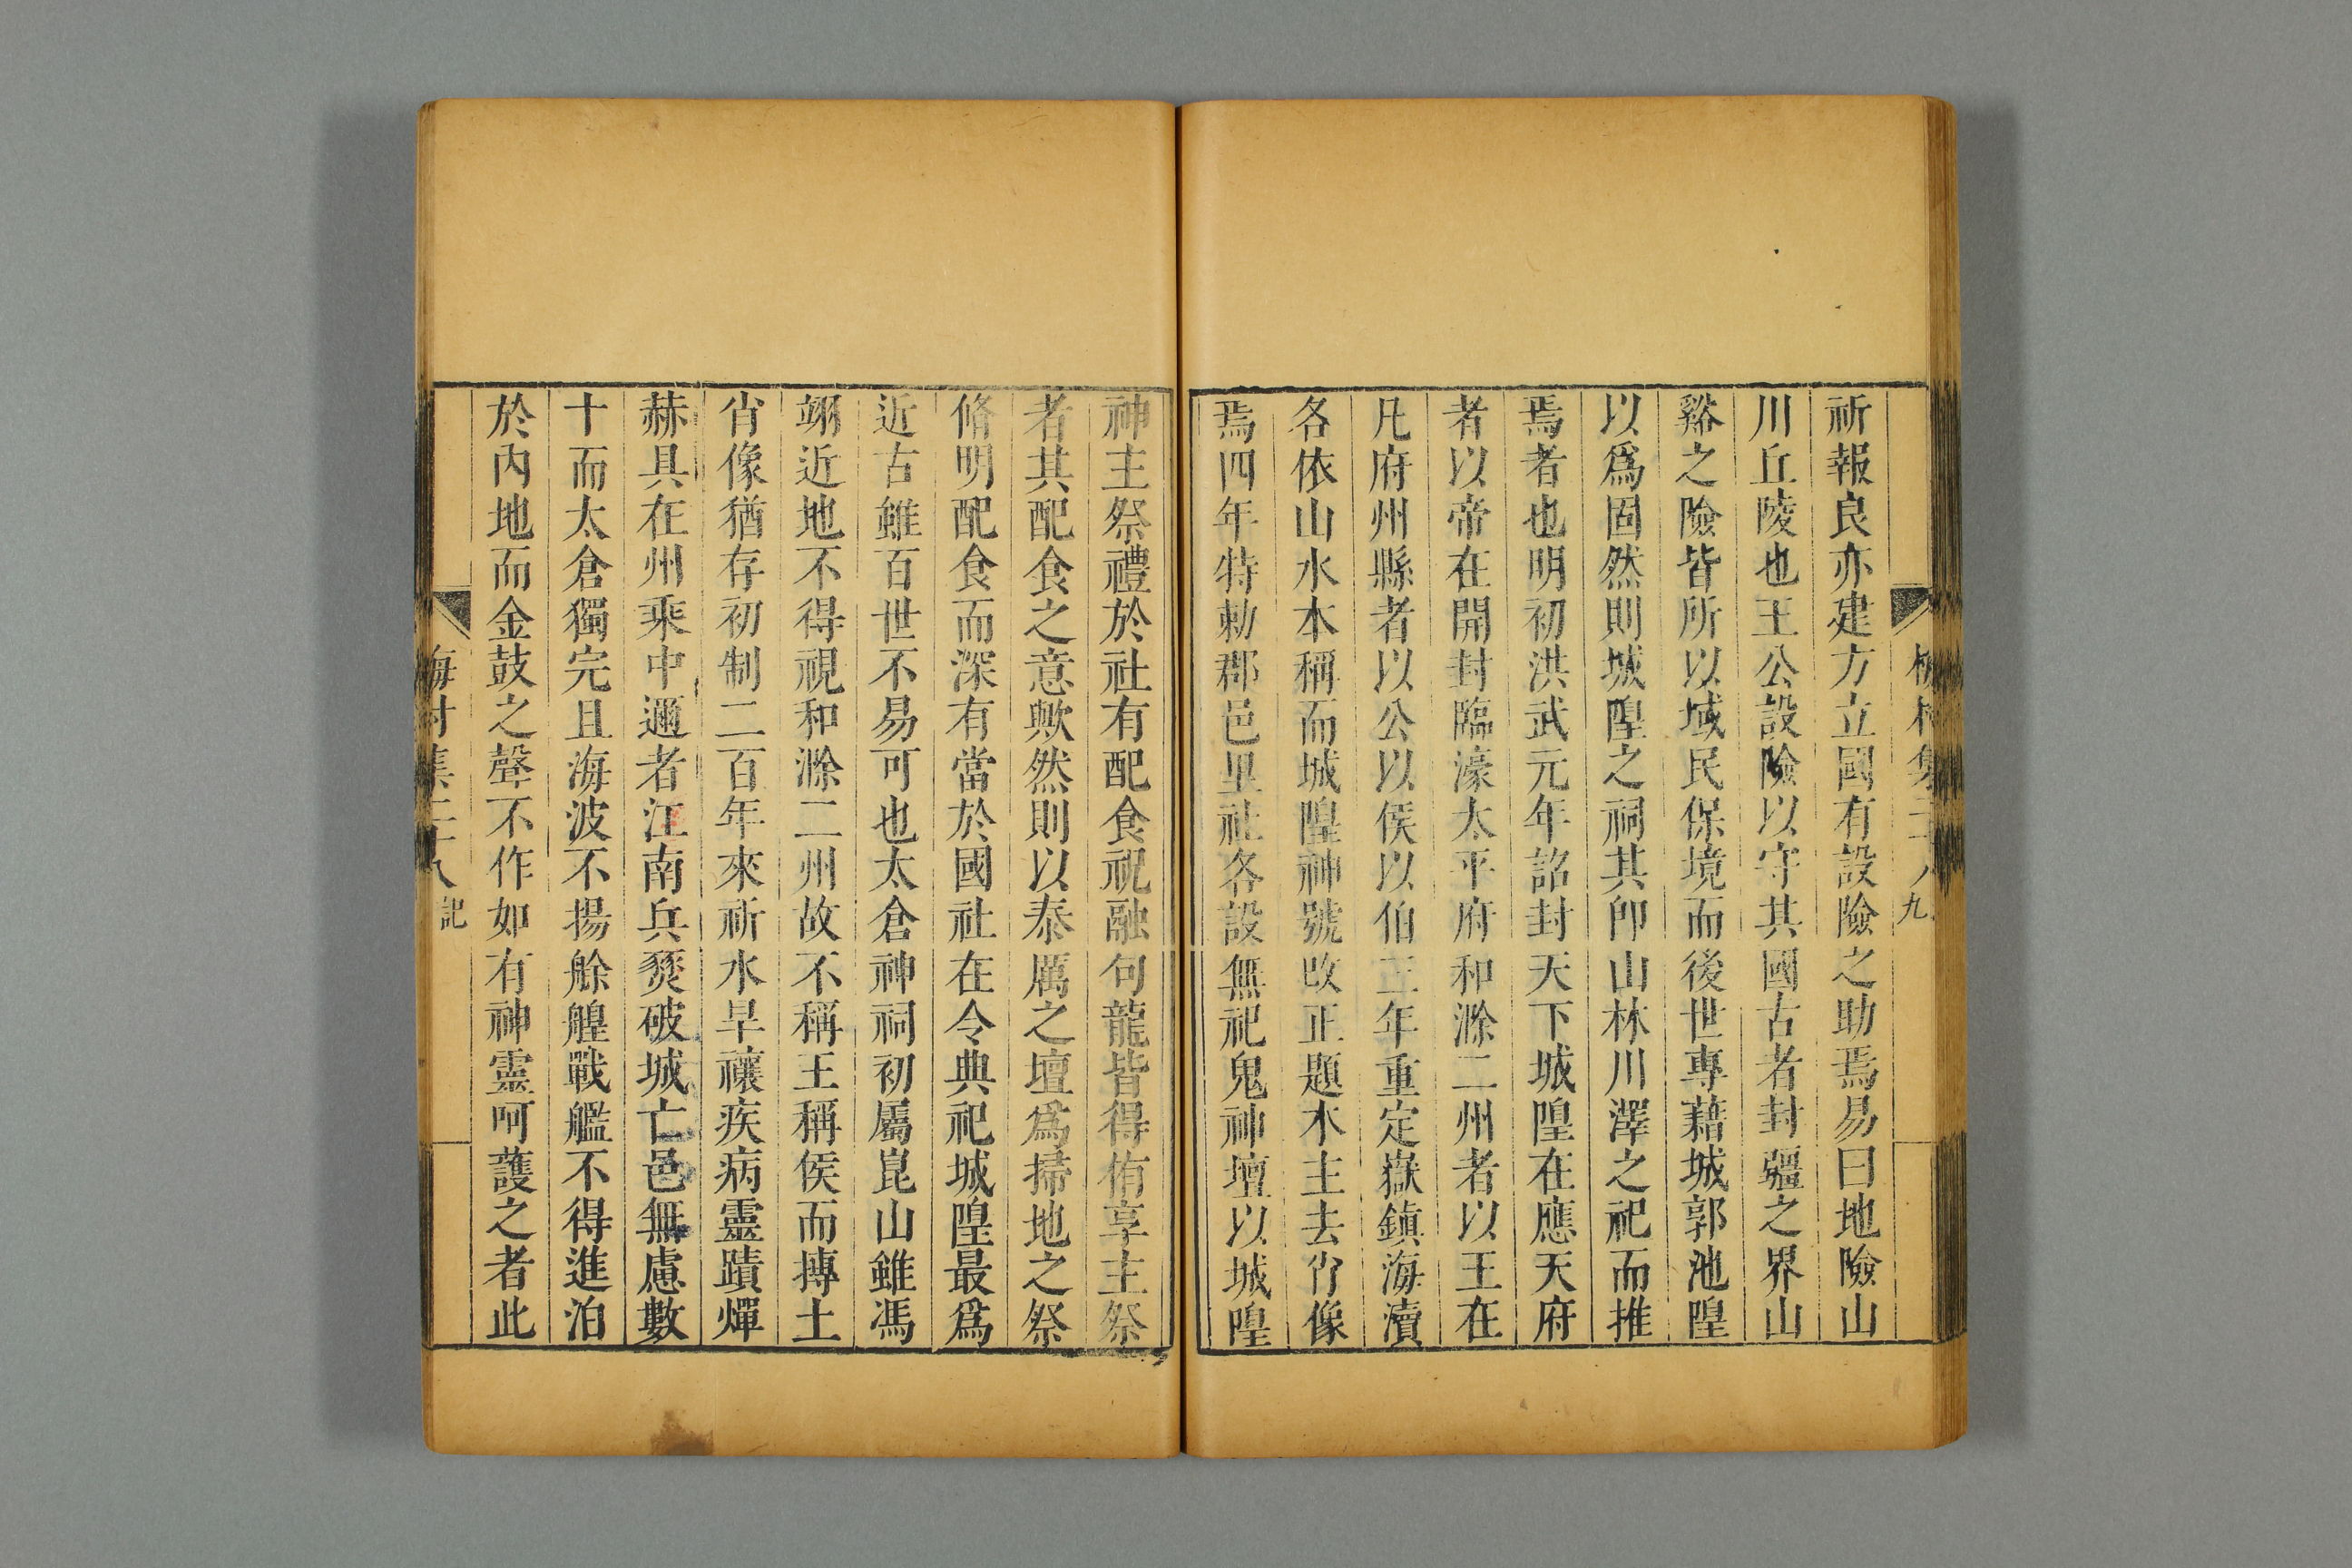 祈報良亦建方立國有設險之助焉易曰地險山
川丘陵也王公設險以守其國古者封疆之界山
谿之險皆所以域民保境而後世專藉城郭池隍
以爲固然則城隍之祠其卽山林川澤之祀而推
焉者也明初洪武元年詔封天下城隍在應天府
者以帝在開封臨濠太平府和滁二州者以王在
凡府州縣者以公以侯以伯三年重定嶽鎮海瀆
各依山水本稱而城隍神號改正題木主去肖像
焉四年特勅郡邑里社各設無祀鬼神壇以城隍
神主祭禮於社有配食祝融句龍皆得侑享主祭
者其配食之意歟然則以泰厲之壇爲掃地之祭
脩明配食而深有當於國社在令典祀城隍最爲
近古雖百世不易可也太倉神祠初屬崑山雖馮
翊近地不得視和滁二州故不稱王稱侯而摶土
肖像猶存初制二百年來祈水旱禳疾病靈蹟燀
赫具在州乘中邇者江南兵燹破城亡邑無慮數
十而太倉獨完且海波不揚艅艎戰艦不得進泊
於內地而金鼓之聲不作如有神靈呵護之者此
梅村集二十八 記
九